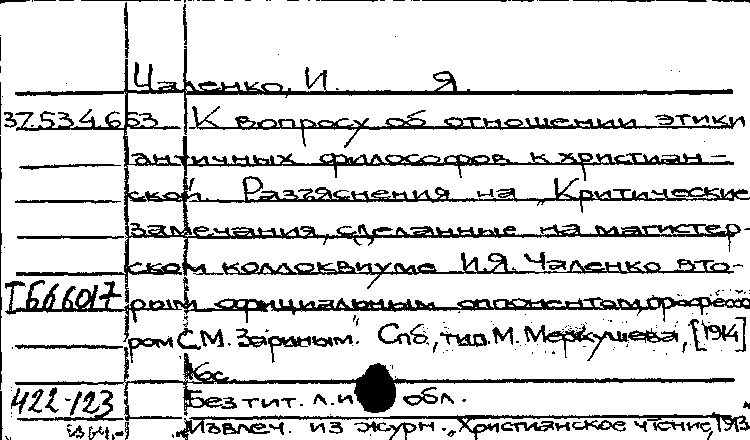 Чаленко, И. Я.
37.534.653 К вопросу об отношении этики
античных философов к христиан-
ской. Разъяснения на „Критические
замечания, сделанные на магистер-
ском коллоквиуме И.Я. Чаленко вто-
I 566017 рым официальным оппонентом, профессо
ром С.М. Зариным." Спб, тип. М. Меркушева, [1914]
16с.
422-123 Без тит. л. и обл.
Извлеч. из журн. „Христианское чтение, 1913